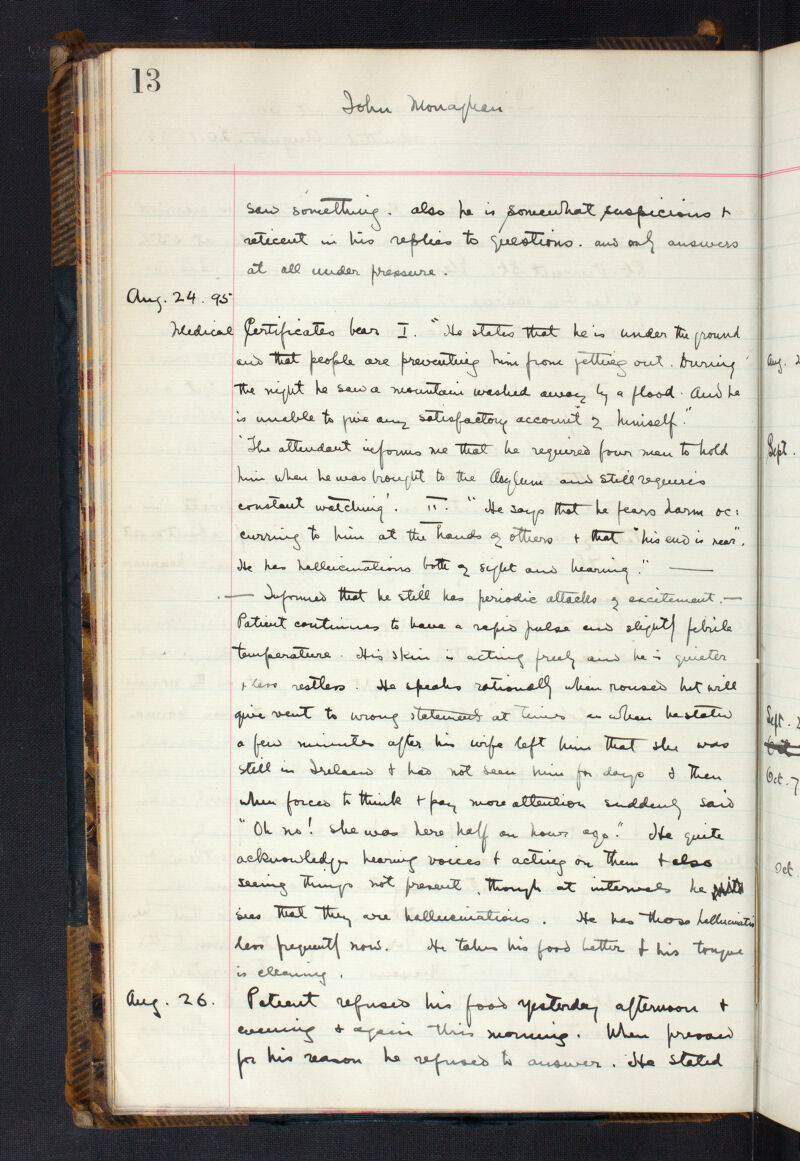 13
John Monaghan
saw something. also he is somewhat suspicious +
reticent in his replies to questions. and only answers
at all under pressure.
Aug. 24. 95
Medical Certificates bear I. "He states that he is under the ground
and that people are preventing him from getting out. During
the night he saw a mountain washed away by a flood. And he
is unable to give any satisfactory account of himself."
'The attendant informs me that he required four men to hold
him when he was brought to the Asylum and still requires
constant watching'. II. "He says that he fears harm oc:
curring to him at the hands of others + that "his end is near".
He has hallucinations both of sight and hearing." —
— Informed that he still has periodic attacks of excitement. —
Patient continues to have a rapid pulse and slightly febrile
temperature. His skin is acting freely and he is quieter
+ less restless. He speaks rationally when roused but will
give vent to wrong statements at times as when he stated
a few minutes after his wife left him that she was
still in Ireland + had not seen him for days & then
when forced to think + pay more attention suddenly said
"Oh no! she was here half an hour ago." He quite
acknowledges hearing voices + acting on them + also
seeing things not present, though at intervals he
sees that they are hallucinations. He has those hallucinatio
less frequently now. He takes his food better & his tongue
is cleaning.
Aug. 26. Patient refused his food yesterday afternoon +
evening + again this morning. When pressed
for his reason he refused to answer. He stated
Aug. 2
Sept.
Sept. 2
Oct. 7
Oct